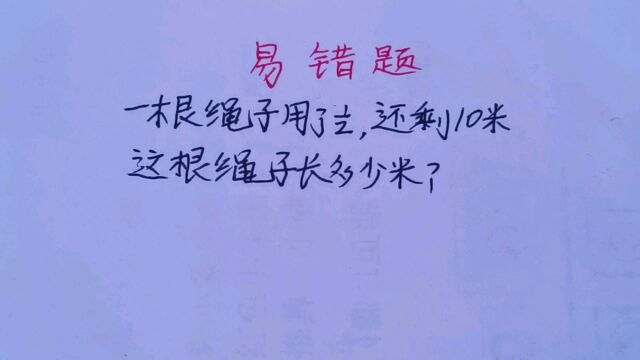 易错题
一根绳子用了,还剩10米
这根绳子长多少米?